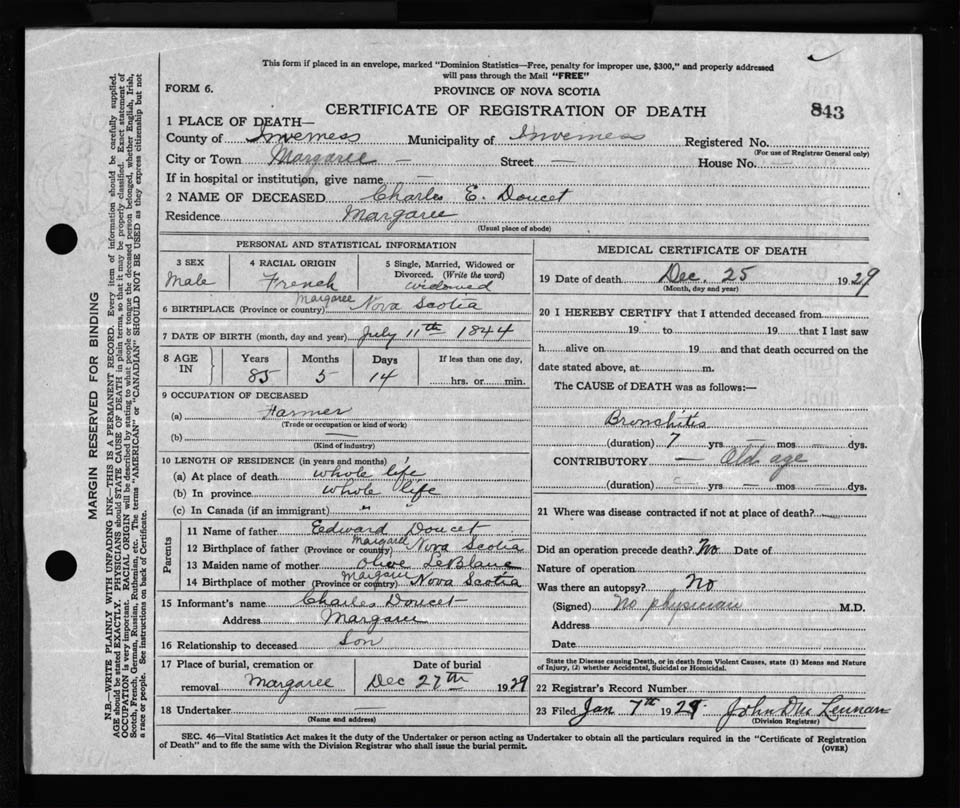 This form if placed in an envelope, marked "Dominion Statistics—Free, penalty for improper use, $300," and properly addressed
will pass through the Mail "FREE"
FORM 6.
PROVINCE OF NOVA SCOTIA
CERTIFICATE OF REGISTRATION OF DEATH
843
1 PLACE OF DEATH—
County of Inverness Municipality of Inverness Registered No.
(For use of Registrar General only)
City or Town Margaree — Street House No. —
If in hospital or institution, give name —
2 NAME OF DECEASED Charles E. Doucet
Residence Margaree
(Usual place of abode)
PERSONAL AND STATISTICAL INFORMATION
3 SEX
Male
4 RACIAL ORIGIN
French
5 Single, Married, Widowed or
Divorced. (Write the word)
widowed
6 BIRTHPLACE (Province or country) Margaree Nova Scotia
7 DATE OF BIRTH (month, day and year) July 11th 1844
8 AGE IN
Years Months Days If less than one day,
85 5 14 hrs. or min.
9 OCCUPATION OF DECEASED
(a) Farmer
(Trade or occupation or kind of work)
(b) —
(Kind of industry)
10 LENGTH OF RESIDENCE (in years and months)
(a) At place of death whole life
(b) In province whole life
(c) In Canada (if an immigrant)
Parents
11 Name of father Edward Doucet
12 Birthplace of father (Province or country) Margaree Nova Scotia
13 Maiden name of mother Olive LeBlanc
14 Birthplace of mother (Province or country) Margaree Nova Scotia
15 Informant's name Charles Doucet
Address Margaree
16 Relationship to deceased Son
17 Place of burial, cremation or
removal Margaree
Date of burial
Dec 27th 1929
18 Undertaker —
(Name and address)
MEDICAL CERTIFICATE OF DEATH
19 Date of death Dec. 25 1929
(Month, day and year)
20 I HEREBY CERTIFY that I attended deceased from
19 to 19 that I last saw
h alive on 19 and that death occurred on the
date stated above, at m.
The CAUSE of DEATH was as follows:—
Bronchitis
(duration) 7 yrs — mos — dys.
CONTRIBUTORY — Old age
(duration) — yrs — mos — dys.
21 Where was disease contracted if not at place of death?
Did an operation precede death? No Date of
Nature of operation
Was there an autopsy? No
(Signed) No physician M.D.
Address
Date
State the Disease causing Death, or in death from Violent Causes, state (1) Means and Nature
of Injury, (2) whether Accidental, Suicidal or Homicidal.
22 Registrar's Record Number
23 Filed Jan 7th 1929. John D Mc Lennan
(Division Registrar)
SEC. 46—Vital Statistics Act makes it the duty of the Undertaker or person acting as Undertaker to obtain all the particulars required in the "Certificate of Registration
of Death" and to file the same with the Division Registrar who shall issue the burial permit.
(OVER)
MARGIN RESERVED FOR BINDING
N.B.—WRITE PLAINLY WITH UNFADING INK—THIS IS A PERMANENT RECORD. Every item of information should be carefully supplied.
AGE should be stated EXACTLY. PHYSICIANS should STATE CAUSE OF DEATH in plain terms, so that it may be properly classified. Exact statement of
OCCUPATION is very important. RACIAL ORIGIN will be described by stating to what people or tongue the deceased person belonged, whether English, Irish,
Scotch, French, German, Russian, Ruthenian, etc. The terms "AMERICAN" or "CANADIAN" SHOULD NOT BE USED as they express citizenship but not
a race or people. See instructions on back of Certificate.